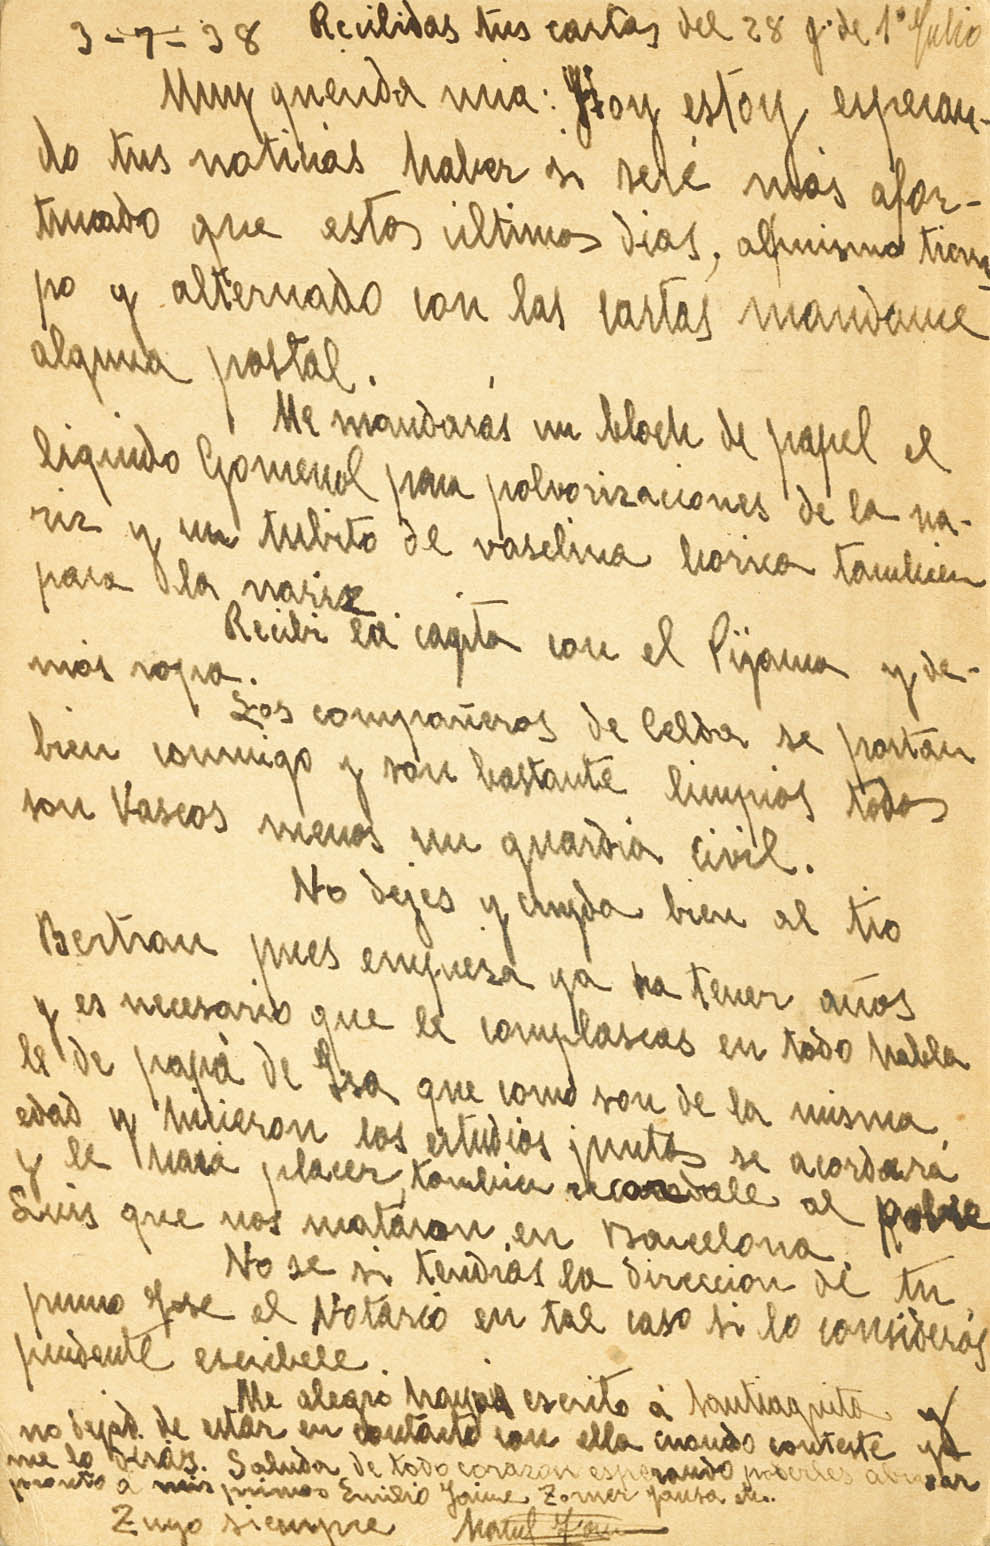 3-7-38 Recibidas tus cartas del 28 y de 1º Julio
Muy querida mia: Hoy estoy esperan-
do tus noticias haber si seré más afor-
tunado que estos ultimos dias, al mismo tiem-
po y alternado con las cartas mandame
alguna postal.
Me mandarás un block de papel el
liquido Gomenol para polvorizaciones de la na-
riz y un tubito de vaselina borica tambien
para la nariz
Recibi la cagita con el Pijama y de-
más ropa.
Los compañeros de Celda se portan
bien conmigo y son bastante limpios todos
son Vascos menos un guardia civil.
No dejes y cuyda bien al tio
Bertran pues empieza ya ha tener años
y es necesario que le complascas en todo habla
le de papá de Isa que como son de la misma
edad y hicieron los estudios juntos se acordará
y le hará placer, tambien recordale al pobre
Luis que nos mataron en Barcelona.
No se si tendrás la direccion de tu
primo Jose el Notario en tal caso si lo considerás
prudente escribele.
Me alegro hayas escrito á Santiaguito y
no dejad. de estar en contacto con ella cuando conteste ya
me lo dirás. Saluda de todo corazon esperando poderles abrazar
pronto á mis primos Emilio Jaime
Tuyo siempre